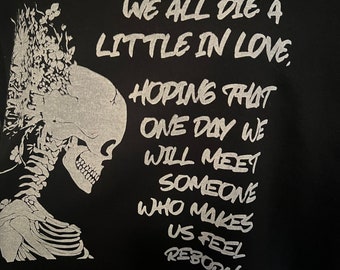 WE ALL DIE A
LITTLE IN LOVE,
HOPING THAT
ONE DAY WE
WILL MEET
SOMEONE
WHO MAKES
US FEEL
REBORN